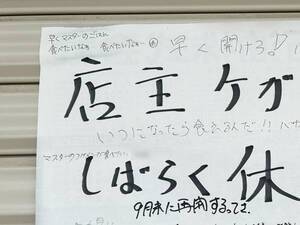 早くマスターのごはん
食べたいなぁ 食べたいなぁー
早く開けろ!!
店主ケガ
いつになったら食えるんだ!!
マスターの
食べたい。
しばらく休
9月末に再開するってさ